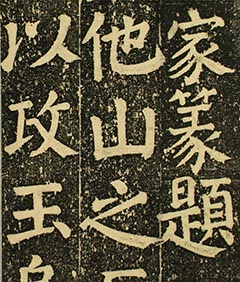 家篆題
他山之
以攻玉